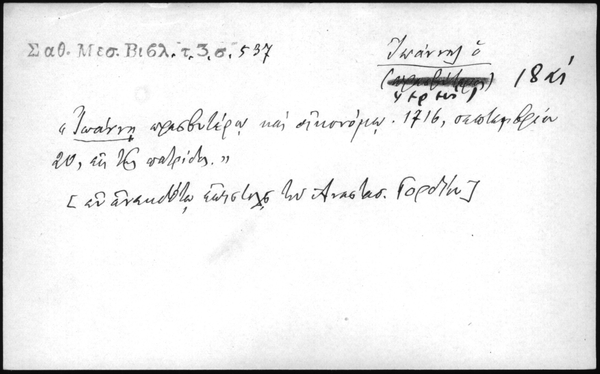 Σαθ. Μεσ. Βιβλ. τ. 3. σ. 537
Ἰωάννης ὁ
18 αἰ
« Ἰωάννῃ πρεσβυτέρῳ καὶ οἰκονόμῳ. 1716, σεπτεμβρίου
20, ἐκ τῆς πατρίδος. »
[ ἐν ἀνεκδότῳ ἐπιστολῇ τοῦ Ἀναστασ. Γορδίου ]